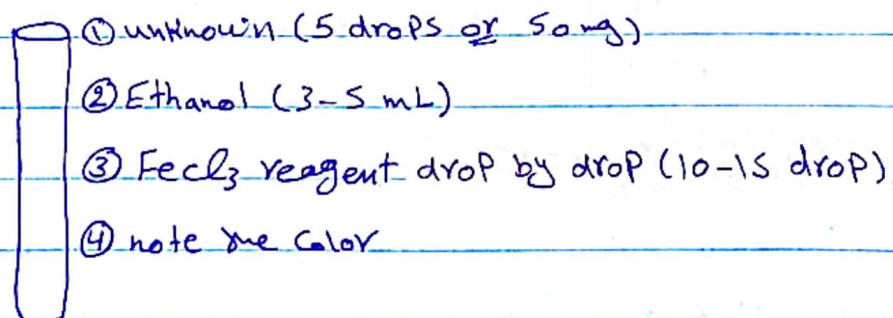 ① unknown (5 drops or 50 mg)
② Ethanol (3-5 mL)
③ FeCl₃ reagent drop by drop (10-15 drop)
④ note the Color